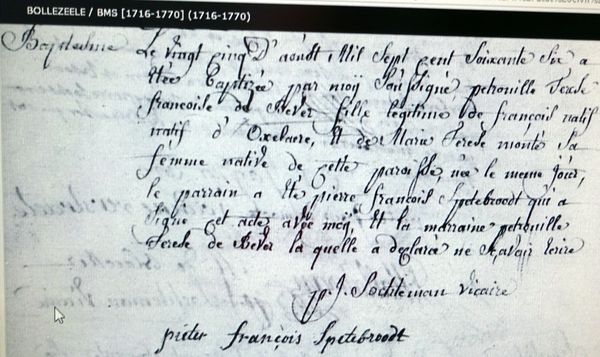 BOLLEZEELE / BMS [1716-1770] (1716-1770)
Baptesme
Le vingt cinq D'aoust Mil Sept cent Soixante Six a
étée Baptisée par moÿ Sousigné, petronille Terese
francoise de Bever fille legitime de francois natif
natif d'Oxelaere, Et de Marie Terese monte Sa
femme native de cette paroisse, née le meme Jour,
le parrain a été pierre francois Spetebroodt qui a
Signé et acter avec moÿ, Et la marraine petronille
Terese de Bever la quelle a declaré ne Scavoir Ecrire
p. J. Sochteman vicaire
pieter françois Spetebroodt